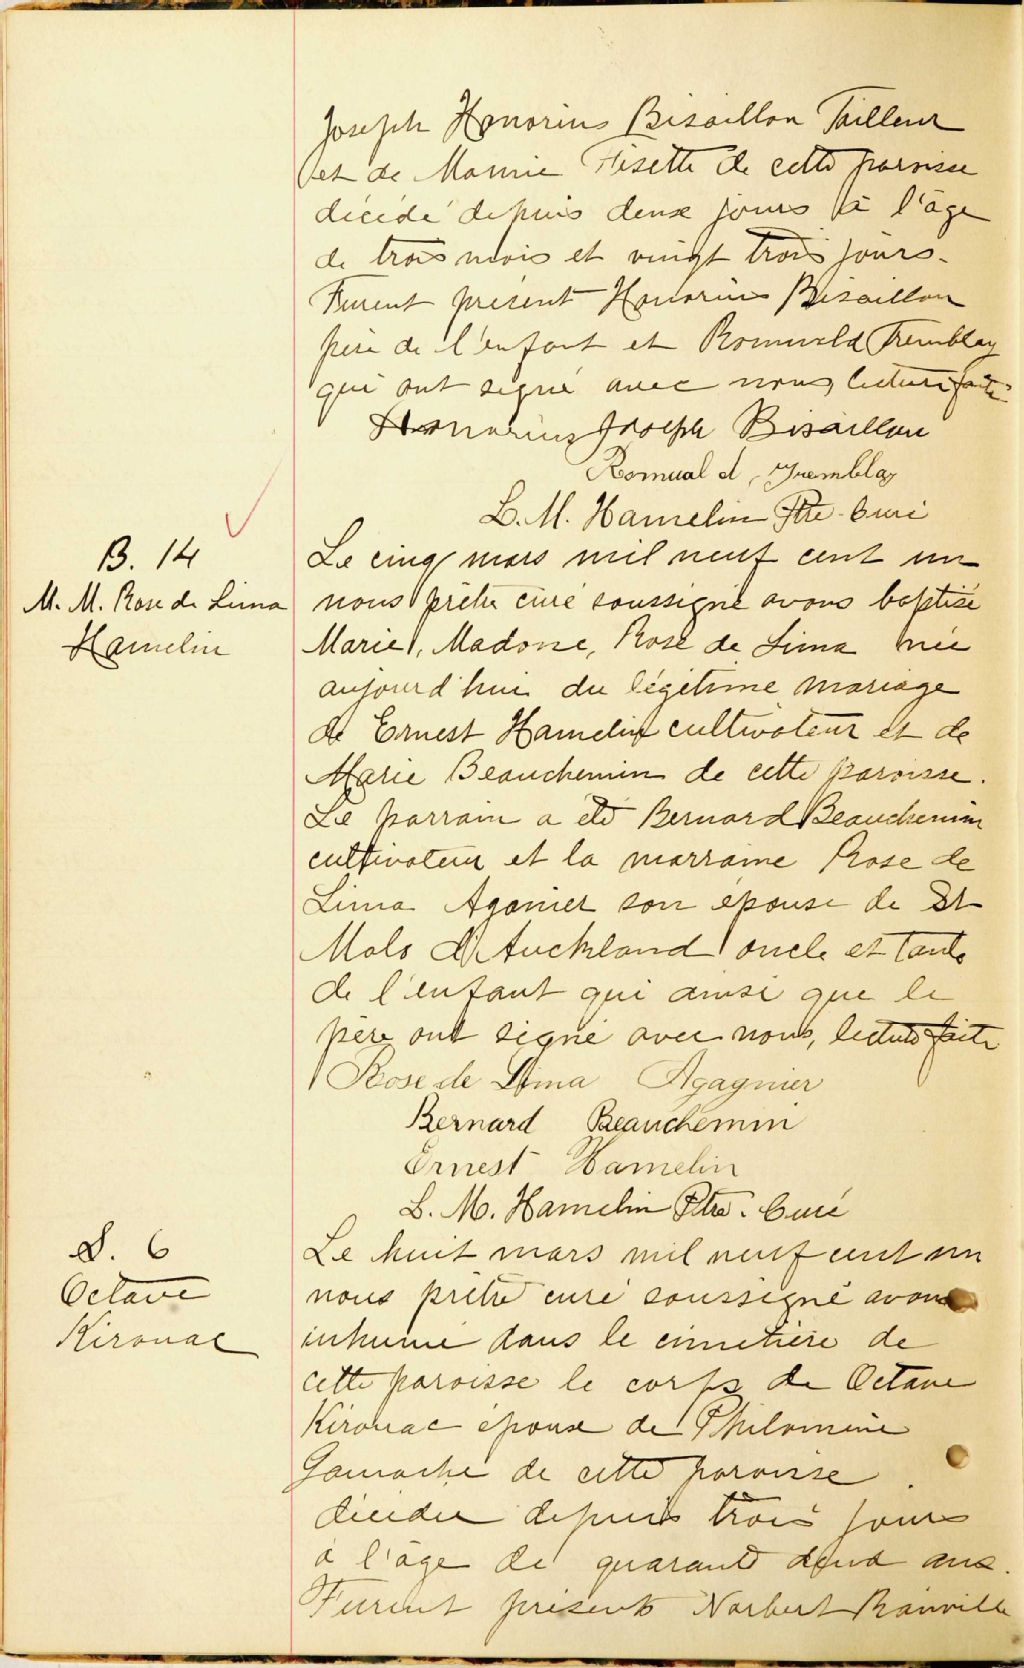 Joseph Honorius Bisaillon Tailleur
et de Mamie Fisette de cette paroisse
décédé depuis deux jours à l'âge
de trois mois et vingt trois jours.
Furent présent Honorius Bisaillon
père de l'enfant et Romuald Tremblay
qui ont signé avec nous, lecture faite
Honorius Joseph Bisaillon
Romuald Tremblay
L. M. Hamelin Ptre. Curé
B. 14
M. M. Rose de Lima
Hamelin
Le cinq mars mil neuf cent un
nous prêtre curé soussigné avons baptisé
Marie, Madone, Rose de Lima née
aujourd'hui du légitime mariage
de Ernest Hamelin cultivateur et de
Marie Beauchemin de cette paroisse.
Le parrain a été Bernard Beauchemin
cultivateur et la marraine Rose de
Lima Aganier son épouse de St
Malo d'Auckland oncle et tante
de l'enfant qui ainsi que le
père ont signé avec nous, lecture faite
Rose de Lima Agagnier
Bernard Beauchemin
Ernest Hamelin
L. M. Hamelin Ptre. Curé
S. 6
Octave
Kirouac
Le huit mars mil neuf cent un
nous prêtre curé soussigné avons
inhumé dans le cimetière de
cette paroisse le corps de Octave
Kirouac époux de Philomène
Gamache de cette paroisse
décédée depuis trois jours
à l'âge de quarante deux ans.
Furent présents Norbert Rainville